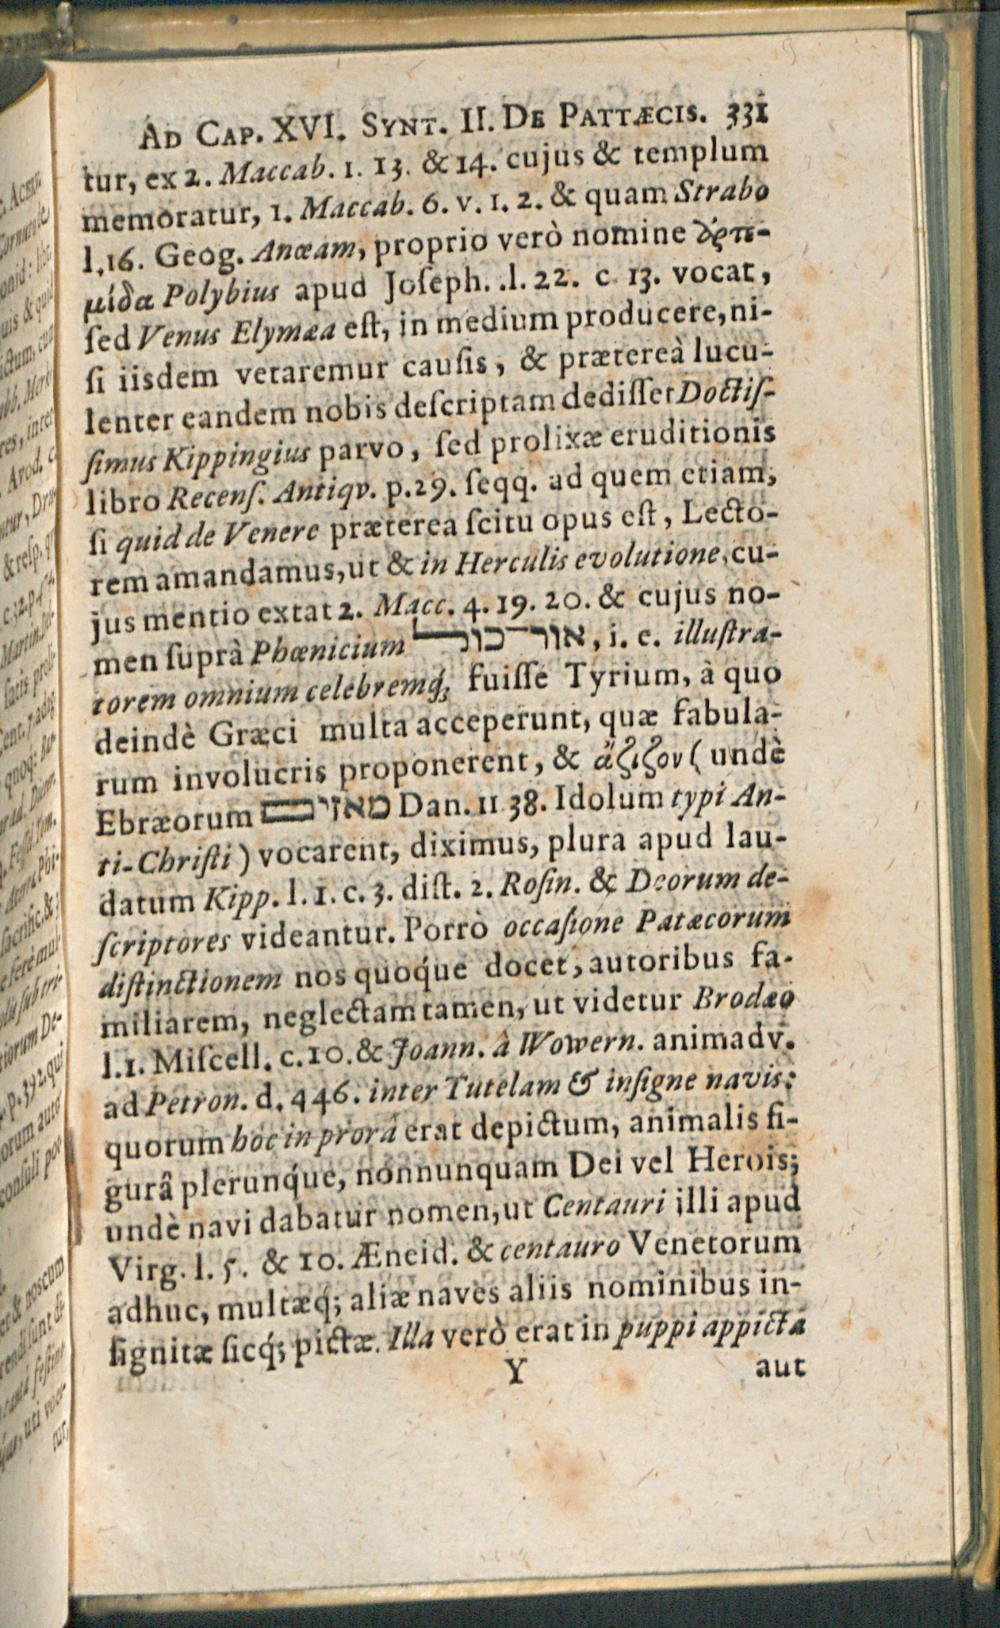 AD CAP. XVI. SYNT. II. DE PATTÆCIS. 331
tur, ex 2. Maccab. 1. 13. & 14. cujus & templum
memoratur, 1. Maccab. 6. v. 1. 2. & quam Strabo
l. 16. Geog. Anæam, proprio verò nomine
μίδα Polybius apud Joſeph. l. 22. c 13. vocat,
ſed Venus Elymæa eſt, in medium producere, ni-
ſi iisdem vetaremur cauſis, & prætereà lucu-
lenter eandem nobis deſcriptam dediſſet Doctiſ-
ſimus Kippingius parvo, ſed prolixæ eruditionis
libro Recenſ. Antiqv. p. 29. ſeqq. ad quem etiam,
ſi quid de Venere præterea ſcitu opus eſt, Lecto-
rem amandamus, ut & in Herculis evolutione, cu-
jus mentio extat 2. Macc. 4. 19. 20. & cujus no-
men ſuprà Phœnicium אור־כול, i. e. illuſtra-
torem omnium celebremq́; fuiſſe Tyrium, à quo
deindè Græci multa acceperunt, quæ fabula-
rum involucris proponerent, & ἄζιζον ( undè
Ebræorum מאזים Dan. 11 38. Idolum typi An-
ti-Chriſti ) vocarent, diximus, plura apud lau-
datum Kipp. l. 1. c. 3. diſt. 2. Roſin. & Deorum de-
ſcriptores videantur. Porrò occaſione Patæcorum
diſtinctionem nos quoq́ue docet, autoribus fa-
miliarem, neglectam tamen, ut videtur Brodæo
l. 1. Miſcell. c. 10. & Joann. à Wowern. animadv.
ad Petron. d. 446. inter Tutelam & inſigne navis:
quorum hoc in prorâ erat depictum, animalis fi-
gurâ plerunq́ue, nonnunquam Dei vel Herois;
undè navi dabatur nomen, ut Centauri illi apud
Virg. l. 5. & 10. Æneid. & centauro Venetorum
adhuc, multæq́; aliæ naves aliis nominibus in-
ſignitæ ſicq́; pictæ. Illa verò erat in puppi appicta
Y aut